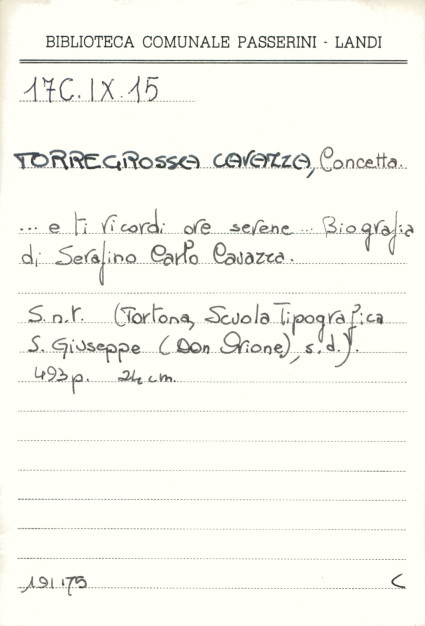 BIBLIOTECA COMUNALE PASSERINI - LANDI
17C.IX.15
TORREGROSSA CAVAZZA, Concetta.
... e ti ricordi ore serene... Biografia
di Serafino Carlo Cavazza.
S.n.t. (Tortona, Scuola Tipografica
S. Giuseppe (Don Orione), s.d.).
493 p. 24 cm.
191175 C